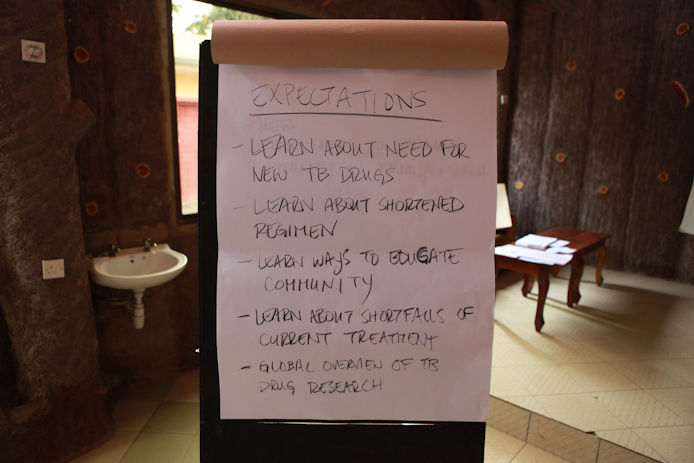 EXPECTATIONS
- LEARN ABOUT NEED FOR
NEW TB DRUGS
- LEARN ABOUT SHORTENED
REGIMEN
- LEARN WAYS TO EDUCATE
COMMUNITY
- LEARN ABOUT SHORTFALLS OF
CURRENT TREATMENT
- GLOBAL OVERVIEW OF TB
DRUG RESEARCH